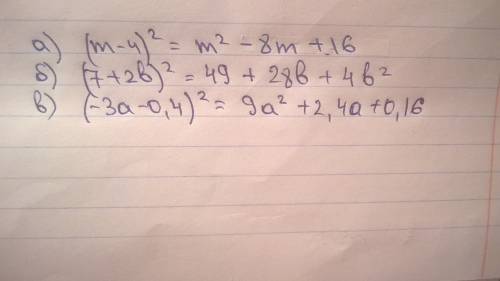 а) (m-4)² = m² - 8m + 16
б) (7+2b)² = 49 + 28b + 4b²
в) (-3a-0,4)² = 9a² + 2,4a + 0,16